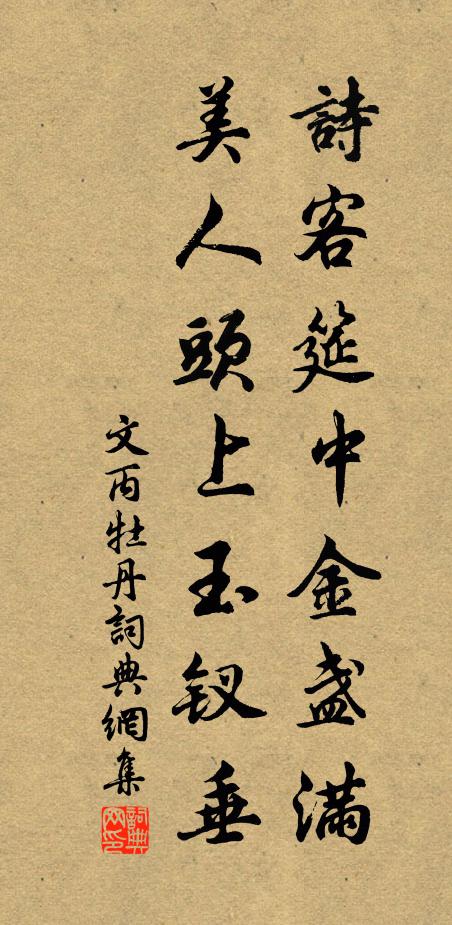 詩客筵中金盞滿
美人頭上玉釵垂
文丙牡丹詞典網集
詞典網印